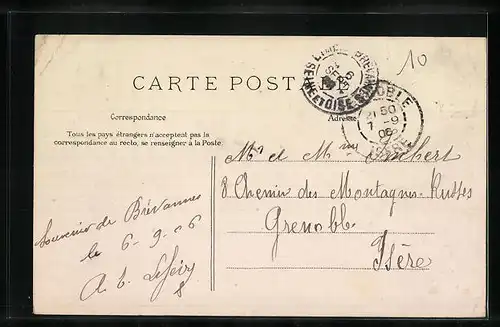 10
CARTE POSTALE
SEINE ET OISE
GRENOBLE
21 50
7 -9
06
ISERE
Correspondance
Adresse
Tous les pays étrangers n'acceptent pas la
correspondance au recto, se renseigner à la Poste.
Mr et Mme Imbert
8 Chemin des Montagnes-Russes
Grenoble
Isère
Souvenir de Brévannes
le 6-9-06